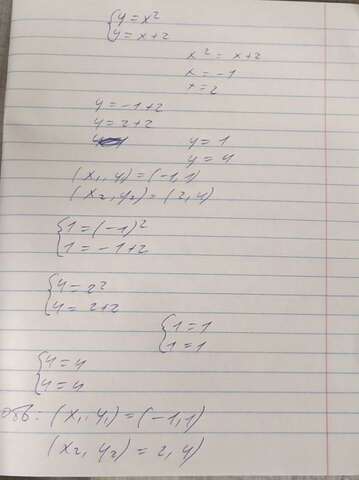 {y = x²
{y = x+2
x² = x+2
x = -1
x = 2
y = -1+2
y = 2+2
y = 1
y = 4
(x₁, y₁) = (-1, 1)
(x₂, y₂) = (2, 4)
{1 = (-1)²
{1 = -1+2
{4 = 2²
{4 = 2+2
{1 = 1
{1 = 1
{4 = 4
{4 = 4
отв: (x₁, y₁) = (-1, 1)
(x₂, y₂) = 2, 4)